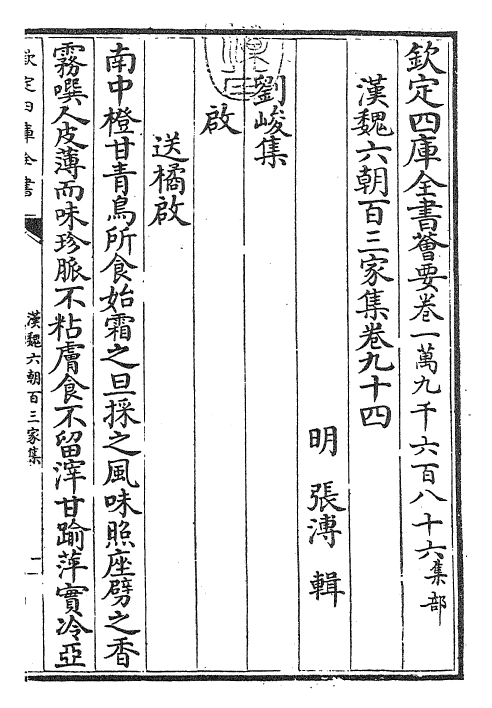 欽定四庫全書薈要卷一萬九千六百八十六集部
漢魏六朝百三家集卷九十四
明 張溥 輯
劉峻集
啟
送橘啟
南中橙甘青鳥所食始霜之旦採之風味照座劈之香
霧噀人皮薄而味珍脈不粘膚食不留滓甘踰萍實冷亞
欽定四庫全書
漢魏六朝百三家集
一